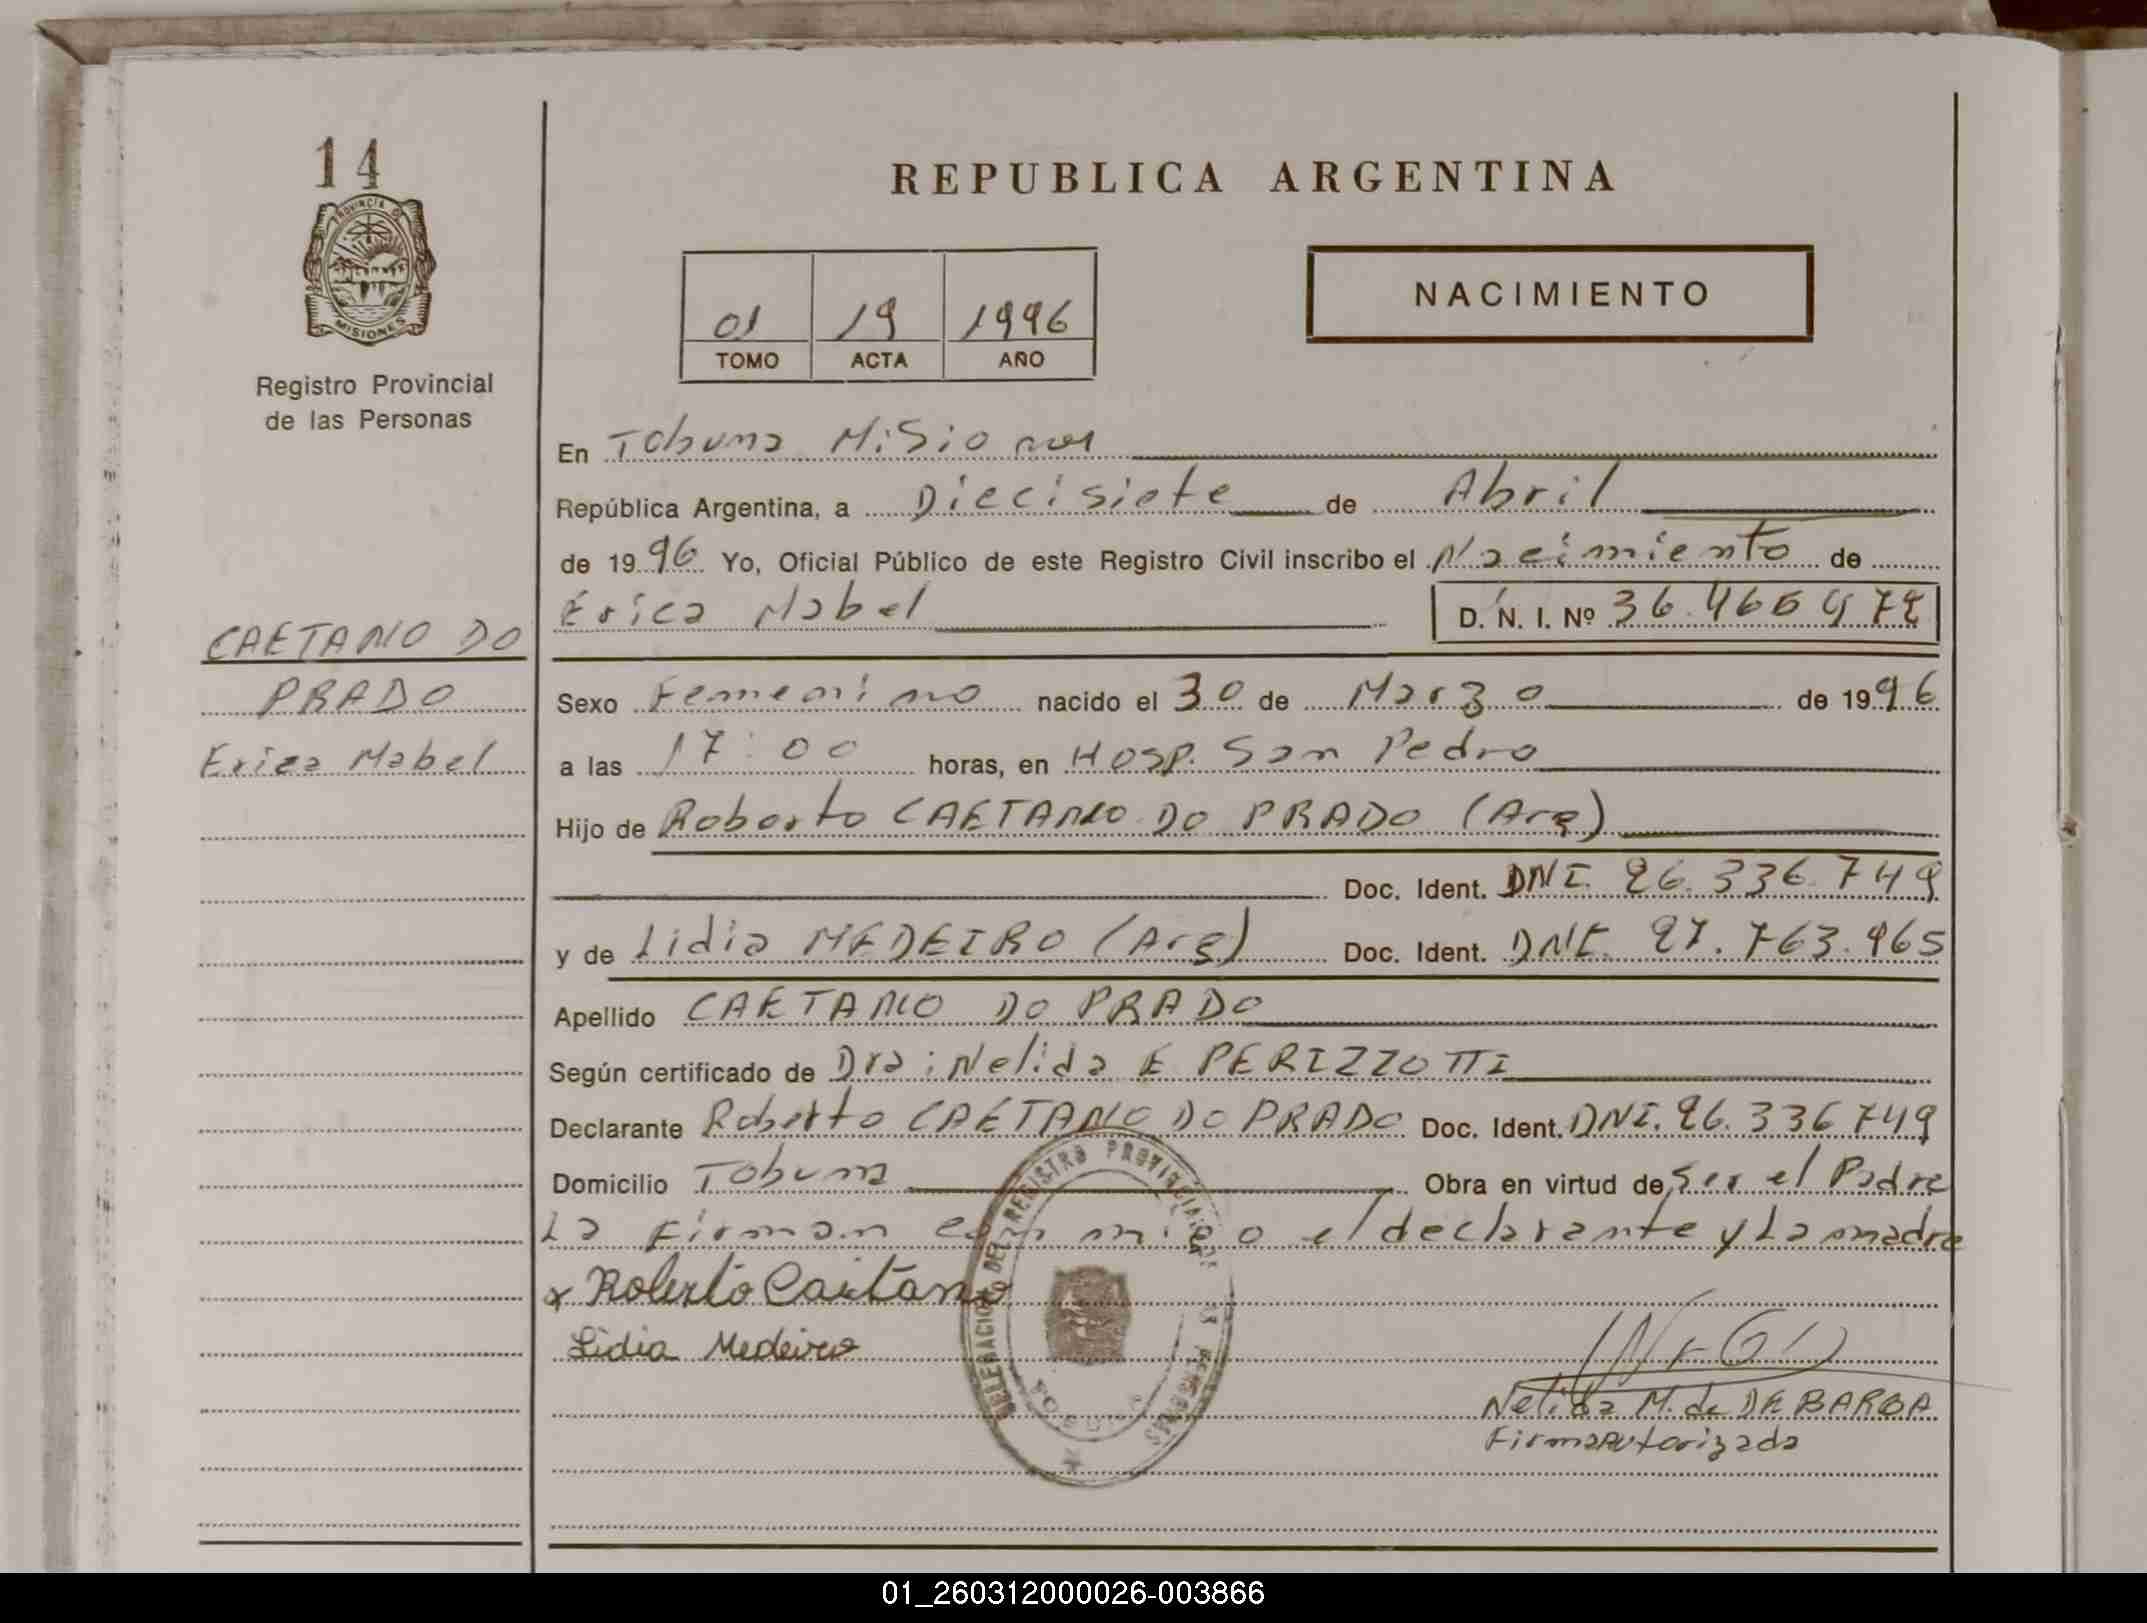 14
PROVINCIA DE
MISIONES
Registro Provincial
de las Personas
CAETANO DO
PRADO
Erica Mabel
REPUBLICA ARGENTINA
01 19 1996
TOMO ACTA AÑO
NACIMIENTO
En Tobuna Misiones
República Argentina, a Diecisiete de Abril
de 1996 Yo, Oficial Público de este Registro Civil inscribo el Nacimiento de
Erica Mabel D. N. I. Nº
Sexo Femenino nacido el 30 de Marzo de 1996
a las 17:00 horas, en Hosp. San Pedro
Hijo de Roberto CAETANO DO PRADO (Arg)
Doc. Ident. DNI. 26.336.749
y de Lidia MEDEIRO (Arg) Doc. Ident. DNI. 27.763.965
Apellido CAETANO DO PRADO
Según certificado de Dra: Nelida E PERIZZOTTI
Declarante Roberto CAETANO DO PRADO Doc. Ident. DNI. 26.336.749
Domicilio Tobuna Obra en virtud de Ser el Padre
La Firman conmigo el declarante y La madre
x Roberto Caitano
Lidia Medeiro
Nelida M. de DE BARBA
Firma Autorizada
DELEGACION DEL REGISTRO PROVINCIAL DE LAS PERSONAS
TOBUNA
01_260312000026-003866